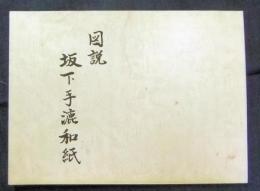 図説
坂下手漉和紙